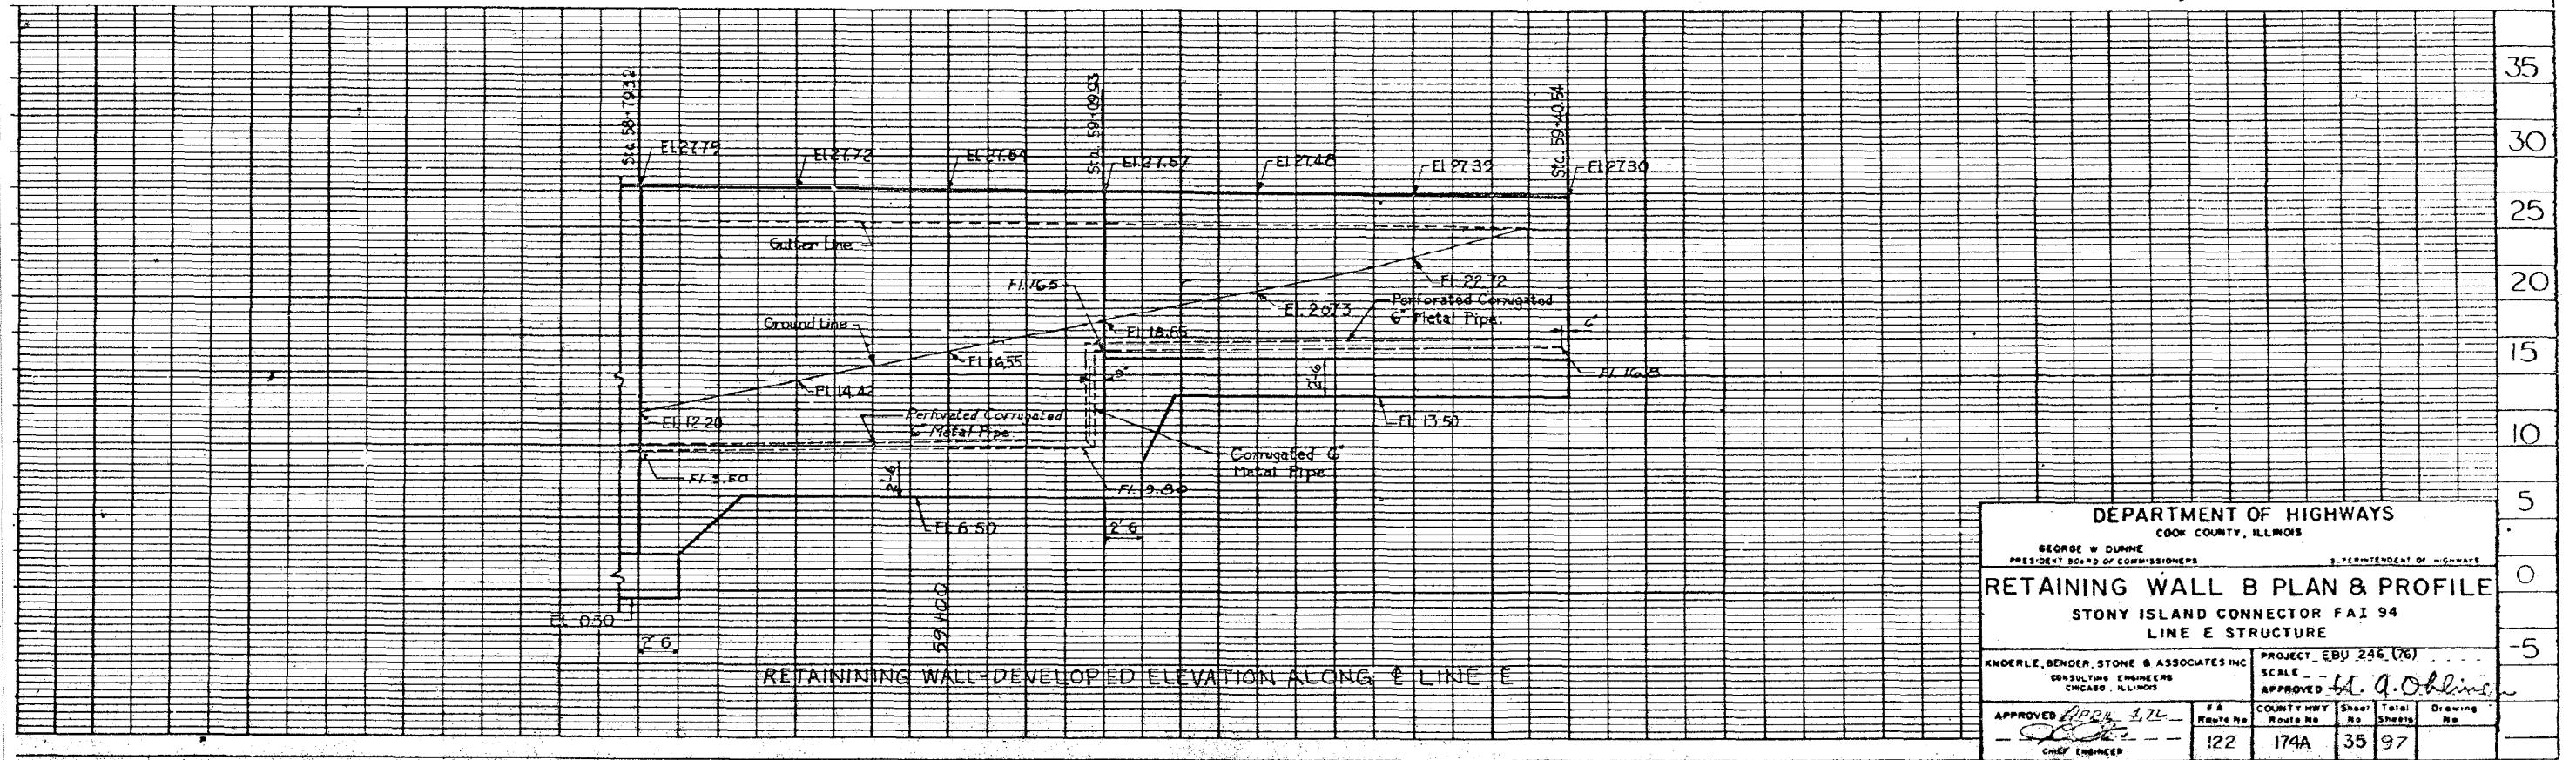 35
30
25
20
15
10
5
0
-5
Sta. 58+79.32
Sta. 59+09.93
Sta. 59+40.54
El. 27.79
El. 27.72
El. 27.64
El. 27.57
El. 27.48
El. 27.39
El. 27.30
Gutter Line
Fl. 16.5
El. 22.72
El. 20.73
Perforated Corrugated
6" Metal Pipe.
6"
Ground Line
El. 18.65
El. 16.55
9"
2'-6
Fl. 16.8
El. 14.42
Perforated Corrugated
6" Metal Pipe
El. 12.20
El. 13.50
Corrugated 6"
Metal Pipe
Fl. 9.50
2'-6
Fl. 9.80
El. 6.50
2'6
El. 0.30
2'6
59+00
RETAINING WALL-DEVELOPED ELEVATION ALONG ℄ LINE E
DEPARTMENT OF HIGHWAYS
COOK COUNTY, ILLINOIS
GEORGE W DUNNE
PRESIDENT BOARD OF COMMISSIONERS
SUPERINTENDENT OF HIGHWAYS
RETAINING WALL B PLAN & PROFILE
STONY ISLAND CONNECTOR FAI 94
LINE E STRUCTURE
KNOERLE, BENDER, STONE & ASSOCIATES INC
CONSULTING ENGINEERS
CHICAGO, ILLINOIS
PROJECT EBU 246 (76)
SCALE
APPROVED
APPROVED
CHIEF ENGINEER
FA Route No
COUNTY HWY Route No
Sheet No
Total Sheets
Drawing No
122
174A
35
97